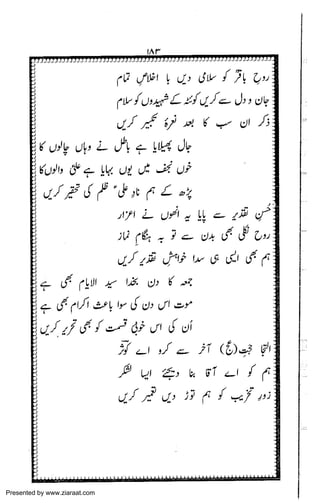 ۱۸۳
روحِ باقرؑ کو سلامی دیں با اخلاصِ تمام
جان و دل سے کریں کوئٹہ کے شہیدوں کو سلام
ذکر ان سب کا بعد نعرۂ تکبیر کریں
جال پھیلایا ہے باطل نے وہاں چالوں کا
خوں نجف میں یوں بہایا ہے علیؑ والوں کا
پڑھ کے ہم نادِ علیؑ ظلم کی تحقیر کریں
حُسنِ تقدیر سے پایا یہ انھوں نے اعزاز
روح نکلی بھی بدن سے تو بہ ہنگامِ نماز
ہم بھی ایسی ہی سدا خواہشِ تقدیر کریں
جمعہ کا دن بخدا سید الایام بھی ہے
موت اس دن کی سوا باعثِ اکرام بھی ہے
اُن کی اس خوبیٔ قسمت کو بھی تحریر کریں
التجا حجتِ (عج) آخر سے کرو اے کوثرؔ
ہم کو اے آقا بنا دیجئے ایسا لشکر
زورِ تخریب کو ہم توڑ دیں تعمیر کریں
Presented by www.ziaraat.com